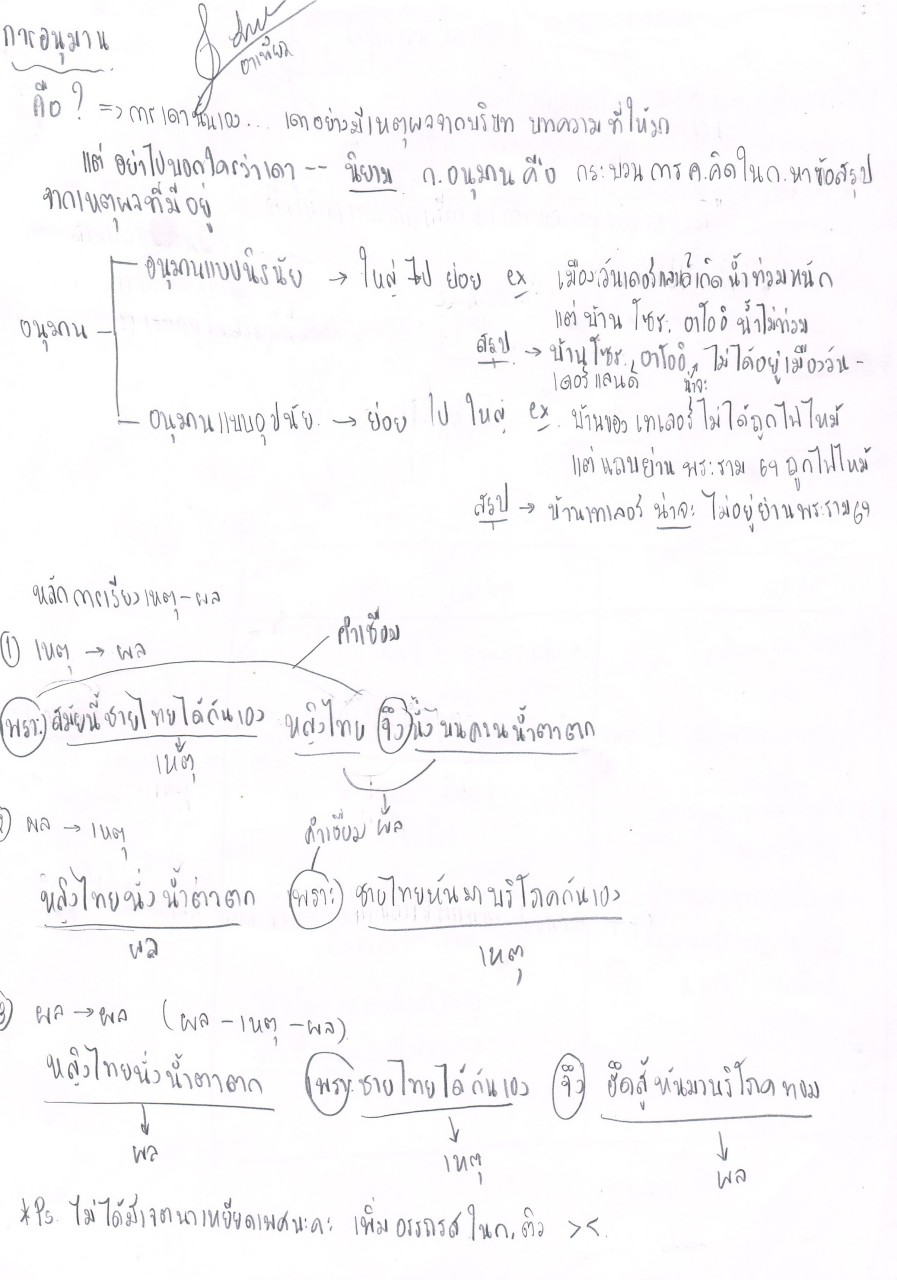 การอนุมาน
อาเทียร
คือ ? => การเดานั่นเอง... เดาอย่างมีเหตุผลจากบริบท บทความที่ให้มา
แต่ อย่าไปบอกใครว่าเดา -- นิยาม ก.อนุมานคือ กระบวนการ ค.คิดในก.หาข้อสรุป
จากเหตุผลที่มีอยู่
อนุมาน
อนุมานแบบนิรนัย → ใหญ่ ไป ย่อย ex. เมืองวันเดอร์แลนด์เกิดน้ำท่วมหนัก
แต่ บ้าน โซระ อาโออิ น้ำไม่ท่วม
สรุป → บ้านโซระ อาโออิ น่าจะ ไม่ได้อยู่เมืองวัน-
เดอร์แลนด์
อนุมานแบบอุปนัย → ย่อย ไป ใหญ่ ex. บ้านของ เทเลอร์ ไม่ได้ถูกไฟไหม้
แต่แถบย่าน พระราม 69 ถูกไฟไหม้
สรุป → บ้านเทเลอร์ น่าจะ ไม่อยู่ย่านพระราม 69
หลักการเรียงเหตุ-ผล
① เหตุ → ผล
คำเชื่อม
เพราะ สมัยนี้ชายไทยได้กันเอง หญิงไทย จึง นั่งบนคานน้ำตาตก
เหตุ
ผล
2 ผล → เหตุ
คำเชื่อม
หญิงไทยนั่งน้ำตาตก เพราะ ชายไทยหันมาบริโภคกันเอง
ผล เหตุ
3 ผล → ผล (ผล - เหตุ - ผล)
หญิงไทยนั่งน้ำตาตก เพราะ ชายไทยได้กันเอง จึง ฮึดสู้ หันมาบริโภคทอม
ผล เหตุ ผล
*Ps. ไม่ได้มีเจตนาเหยียดเพศนะคะ เพิ่มอรรถรสในก.ติว ><